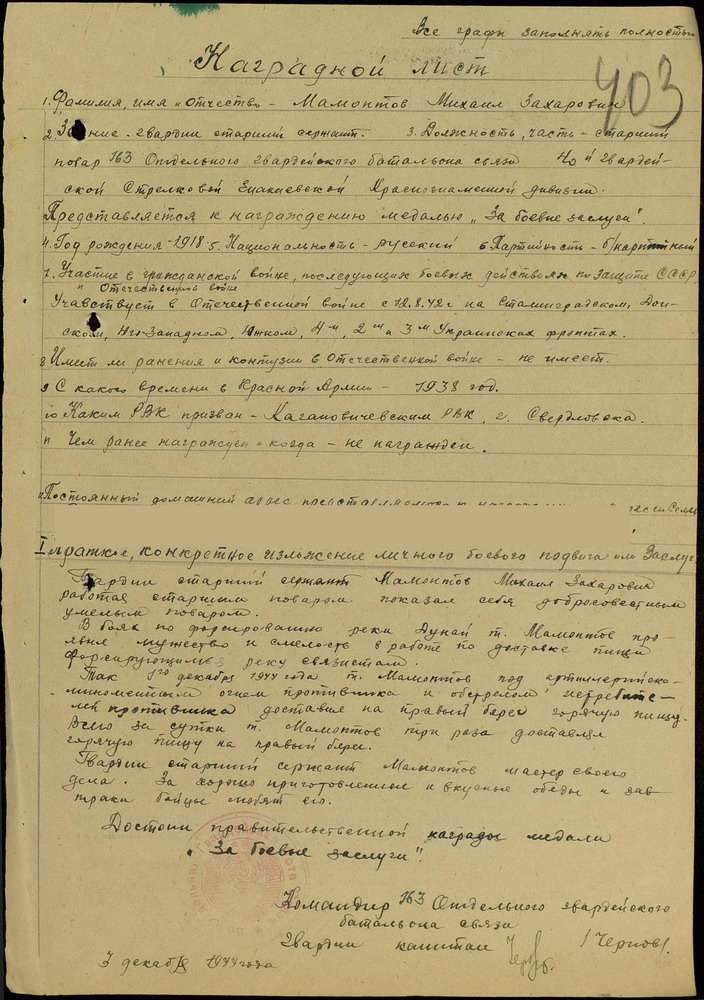 Все графы заполнять полностью
Наградной лист
403
1. Фамилия, имя и отчество – Мамонтов Михаил Захарович
2. Звание – гвардии старший сержант. 3. Должность, часть – старший
повар 163 Отдельного гвардейского баталиона связи 40й гвардей-
ской Стрелковой Енакиевской Краснознаменной дивизии.
Представляется к награждению медалью „За боевые заслуги".
4. Год рождения – 1918. 5. Национальность – русский 6 Партийность – б/партийный
7. Участие в гражданской войне, последующих боевых действиях по защите СССР
и Отечественной войне
Учавствует в Отечественной войне с 12.8.42г на Сталинградском, Дон-
ском, Юго-Западном, Южном, 4м, 2м и 3м Украинских фронтах.
8 Имеет ли ранения и контузии в Отечественной войне – не имеет.
9 С какого времени в Красной Армии – 1938 год.
10 Каким РВК призван – Кагановичевским РВК, г. Свердловска.
11 Чем ранее награжден и когда – не награжден.
Постоянный домашний адрес представляемого к
I Краткое, конкретное изложение личного боевого подвига или Заслуг
Гвардии старший сержант Мамонтов Михаил Захарович
работая старшим поваром показал себя добросовестным
умелым поваром.
В боях по форсированию реки Дунай т. Мамонтов про-
явил мужество и смелость в работе по доставке пищи
форсирующимся реку связистам.
Так 1го декабря 1944 года т. Мамонтов под артиллерийско-
минометным огнем противника и обстрелом истребите-
лей противника доставил на правый берег горячую пищу.
Всего за сутки т. Мамонтов три раза доставлял
горячую пищу на правый берег.
Гвардии старший сержант Мамонтов мастер своего
дела. За хорошо приготовленные и вкусные обеды и зав-
траки бойцы любят его.
Достоин правительственной награды медали
„За боевые заслуги".
Командир 163 Отдельного гвардейского
баталиона связи
Гвардии капитан /Чернов/.
3 декабря 1944 года